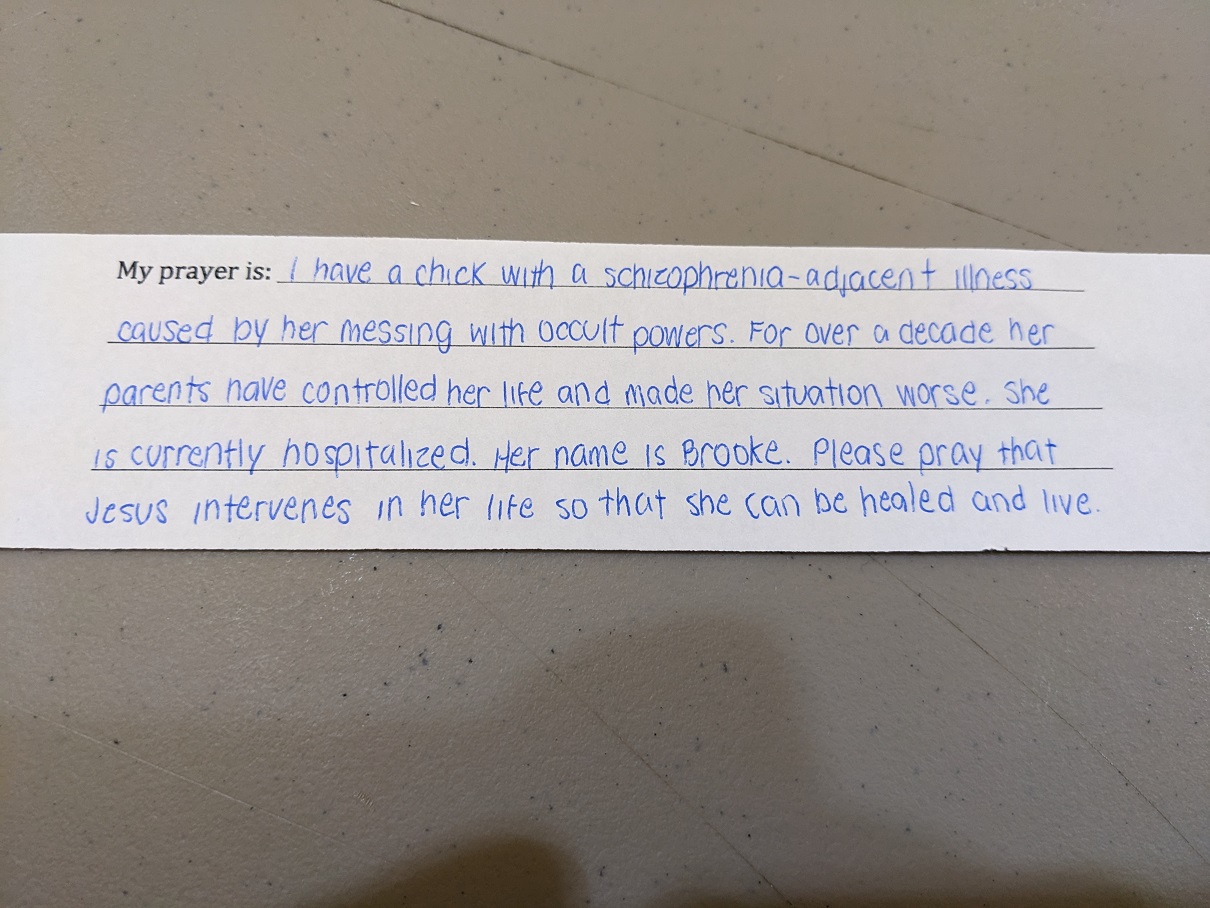 My prayer is: I have a chick with a schizophrenia-adjacent illness
caused by her messing with occult powers. For over a decade her
parents have controlled her life and made her situation worse. She
is currently hospitalized. Her name is Brooke. Please pray that
Jesus intervenes in her life so that she can be healed and live.